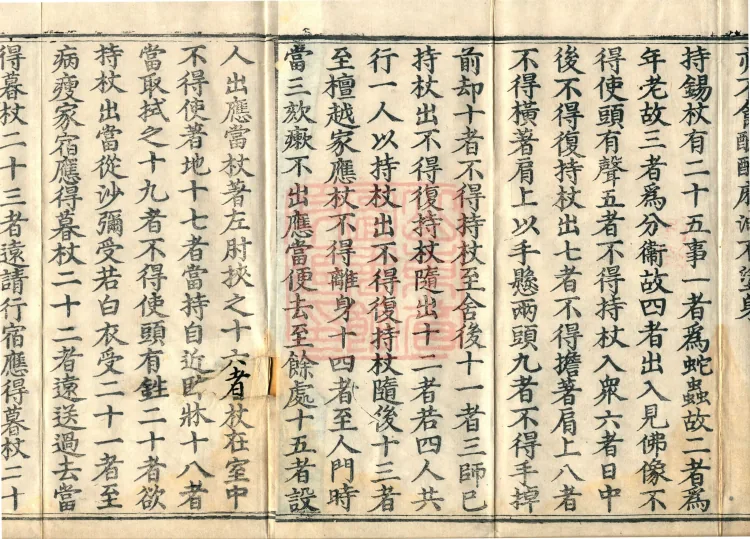 持錫杖有二十五事一者爲蛇蟲故二者爲
年老故三者爲分衞故四者出入見佛像不
得使頭有聲五者不得持杖入衆六者日中
後不得復持杖出七者不得擔著肩上八者
不得橫著肩上以手懸兩頭九者不得手掉
前却十者不得持杖至舍後十一者三師已
持杖出不得復持杖隨出十二者若四人共
行一人以持杖出不得復持杖隨後十三者
至檀越家應杖不得離身十四者至人門時
當三欬瘶不出應當便去至餘處十五者設
人出應當杖著左肘挾之十六者杖在室中
不得使著地十七者當持自近臥牀十八者
當取拭之十九者不得使頭有鉎二十者欲
持杖出當從沙彌受若白衣受二十一者至
病瘦家宿應得暮杖二十二者遠送過去當
得暮杖二十三者遠請行宿應得暮杖二十